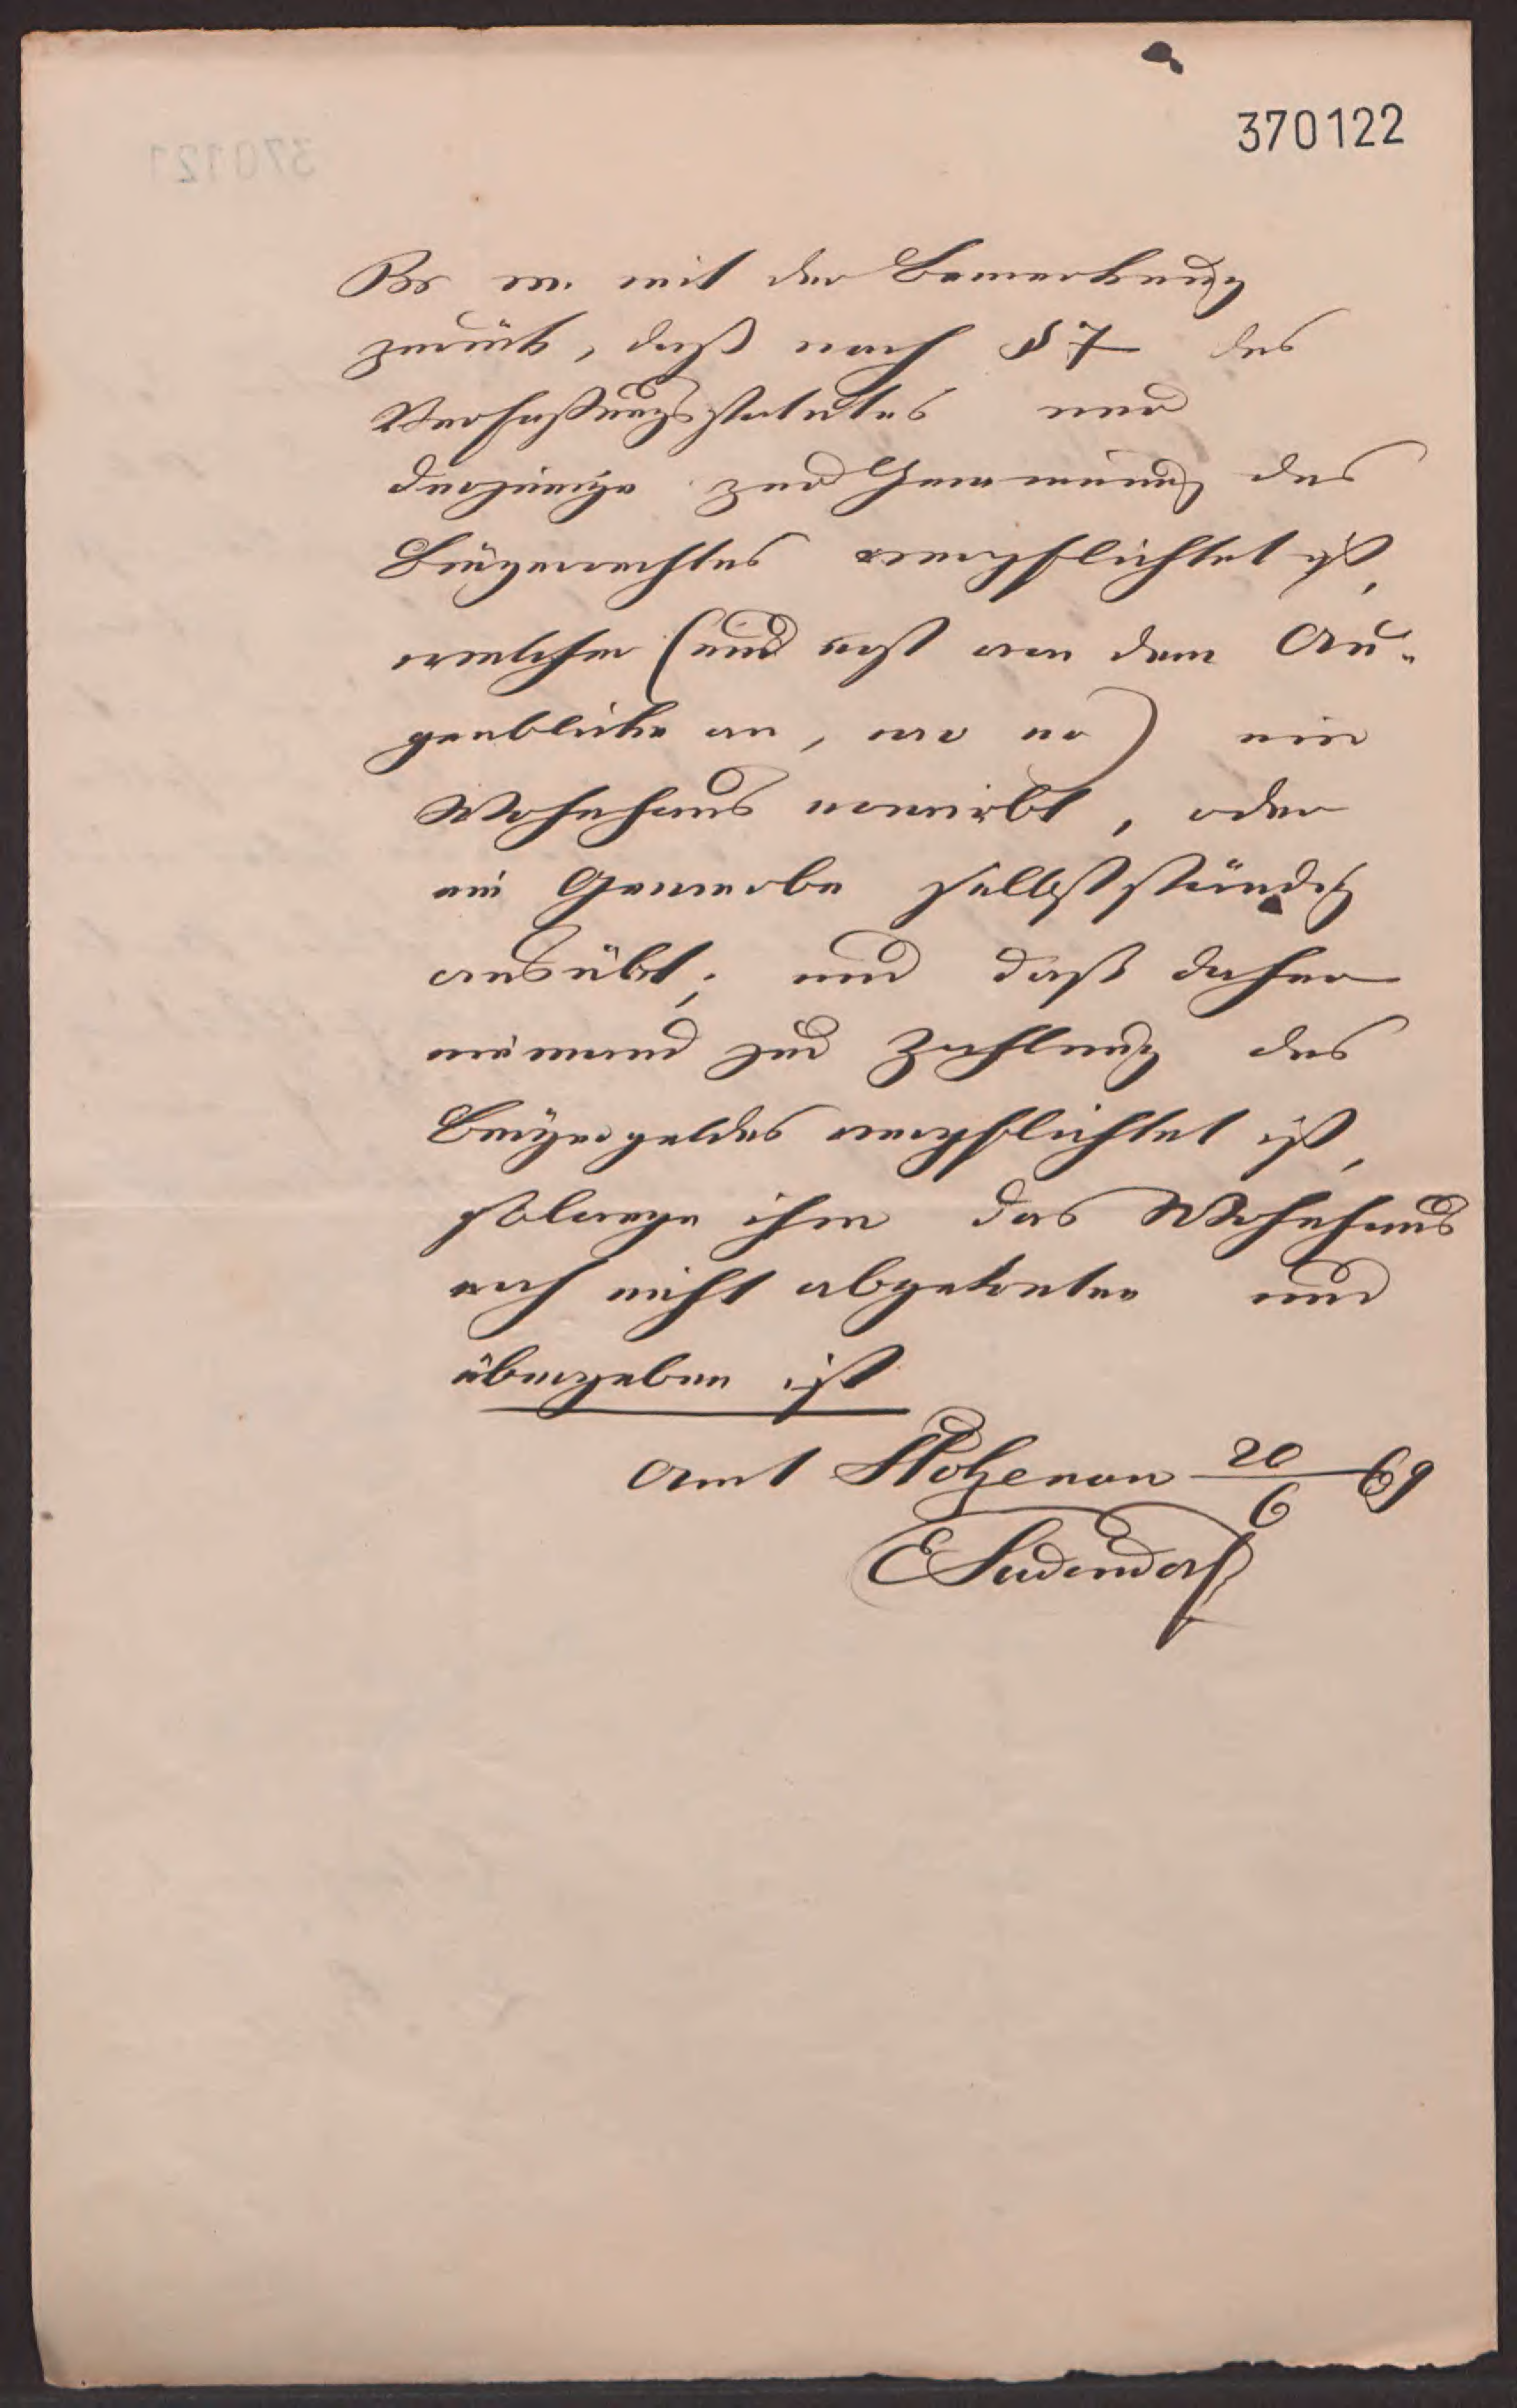 370122
Br. m. mit der Bemerkung
zurück, daß nach § 7 des
Verfaßungsstatutes nur
derjenige zur Gewinnung des
Bürgerrechtes verpflichtet ist,
welcher (und erst von dem Au-
genblicke an, wo er) ein
Wohnhaus erwirbt, oder
ein Gewerbe selbstständig
ausübt; und daß daher
niemand zur Zahlung des
Bürgergeldes verpflichtet ist,
solange ihm das Wohnhaus
noch nicht abgetreten und
übergeben ist
Amt Stolzenau 20/6 69
ESudendorf